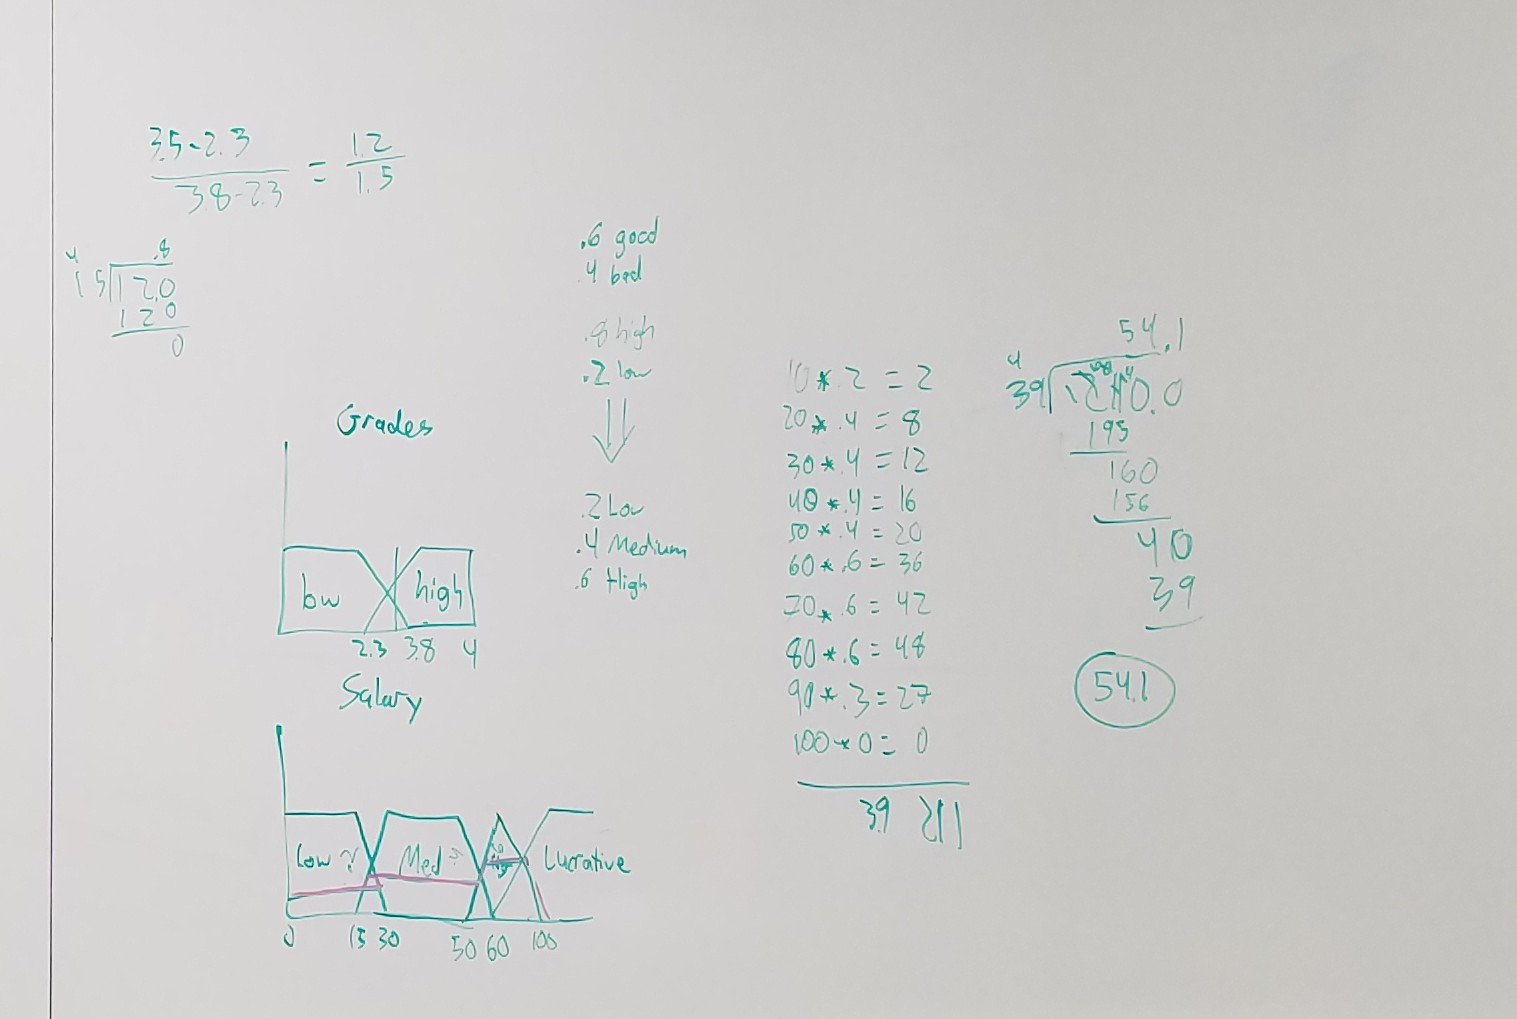 3.5-2.3
3.8-2.3
=
1.2
1.5
.8
4
15 12.0
120
0
.6 good
.4 bad
.8 high
.2 low
.2 Low
.4 Medium
.6 High
Grades
low
high
2.3 3.8 4
Salary
Low
Med
Lucrative
0 15 30 50 60 100
10 * .2 = 2
20 * .4 = 8
30 * .4 = 12
40 * .4 = 16
50 * .4 = 20
60 * .6 = 36
70 * .6 = 42
80 * .6 = 48
90 * .3 = 27
100 * 0 = 0
3.9 211
54.1
4
39
195
160
156
40
39
54.1